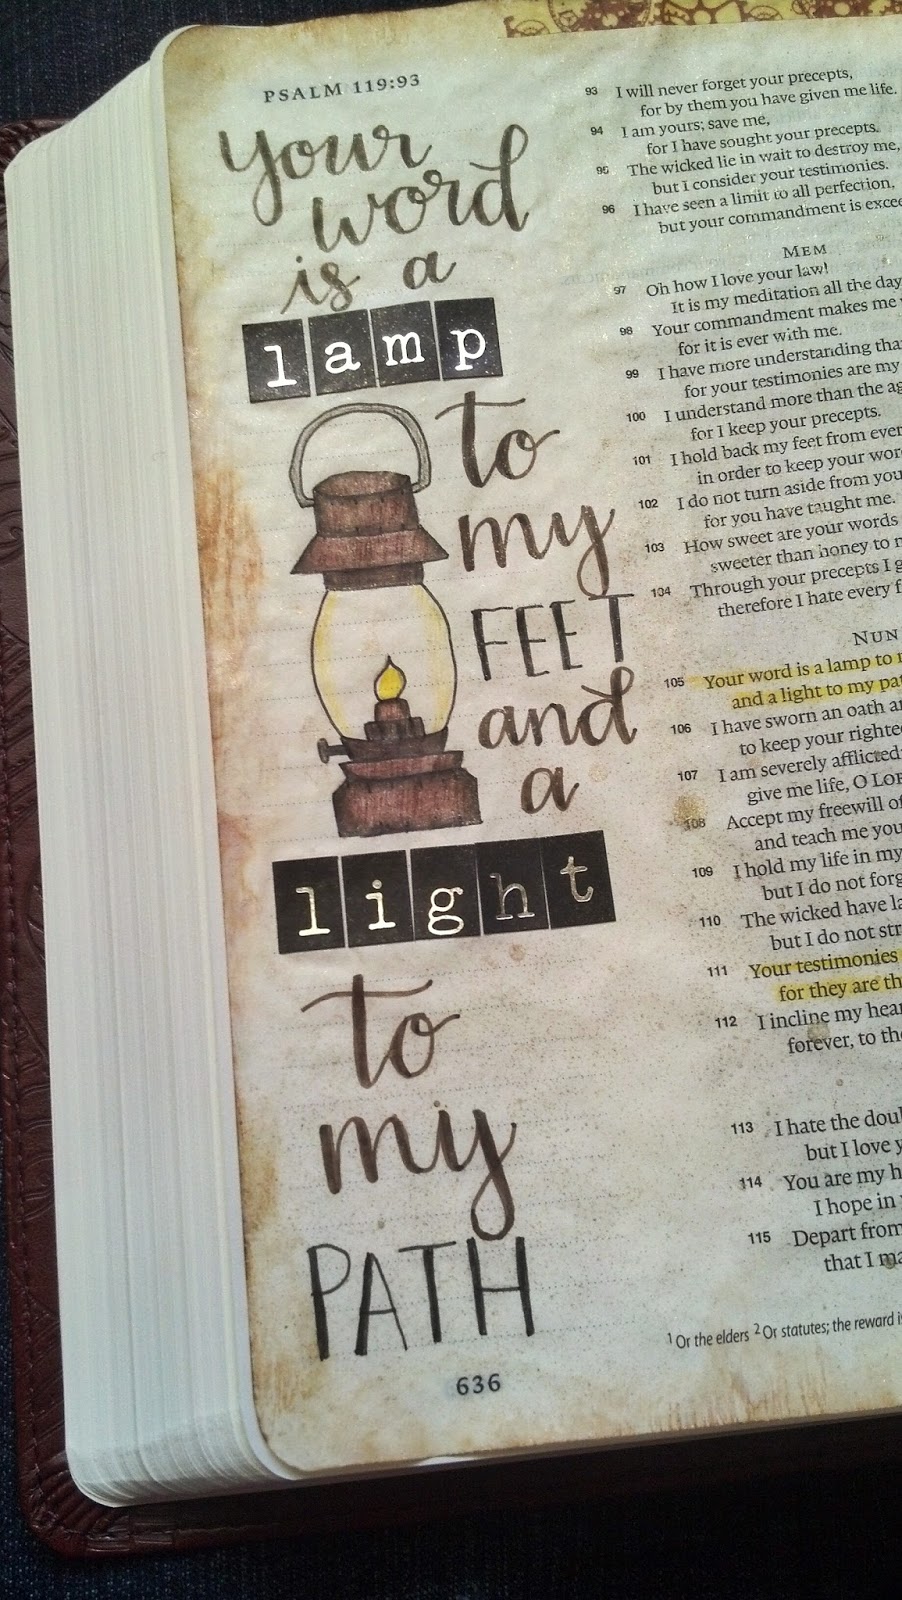 PSALM 119:93
Your
word
is a
lamp
to
my
FEET
and
a
light
to
my
PATH
636
93 I will never forget your precepts,
for by them you have given me life.
94 I am yours; save me,
for I have sought your precepts.
95 The wicked lie in wait to destroy me,
but I consider your testimonies.
96 I have seen a limit to all perfection,
but your commandment is excee
MEM
97 Oh how I love your law!
It is my meditation all the day
98 Your commandment makes me
for it is ever with me.
99 I have more understanding tha
for your testimonies are my
100 I understand more than the ag
for I keep your precepts.
101 I hold back my feet from ever
in order to keep your wor
102 I do not turn aside from you
for you have taught me.
103 How sweet are your words
sweeter than honey to
104 Through your precepts I g
therefore I hate every f
NUN
105 Your word is a lamp to
and a light to my pa
106 I have sworn an oath a
to keep your righte
107 I am severely afflicted
give me life, O LOR
108 Accept my freewill of
and teach me you
109 I hold my life in my
but I do not forg
110 The wicked have la
but I do not str
111 Your testimonies
for they are th
112 I incline my hear
forever, to the
113 I hate the doul
but I love y
114 You are my h
I hope in
115 Depart from
that I ma
1 Or the elders 2 Or statutes; the reward is